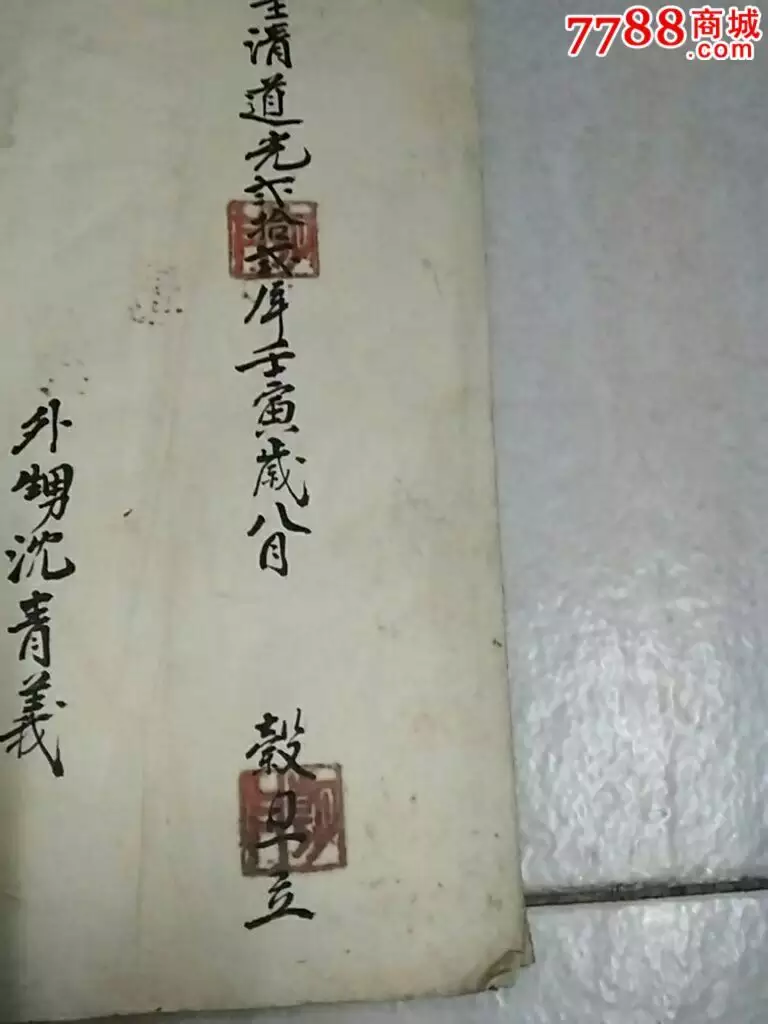 7788商城
.com
清道光弍拾弍年壬寅歲八月
穀旦立
外甥沈青義